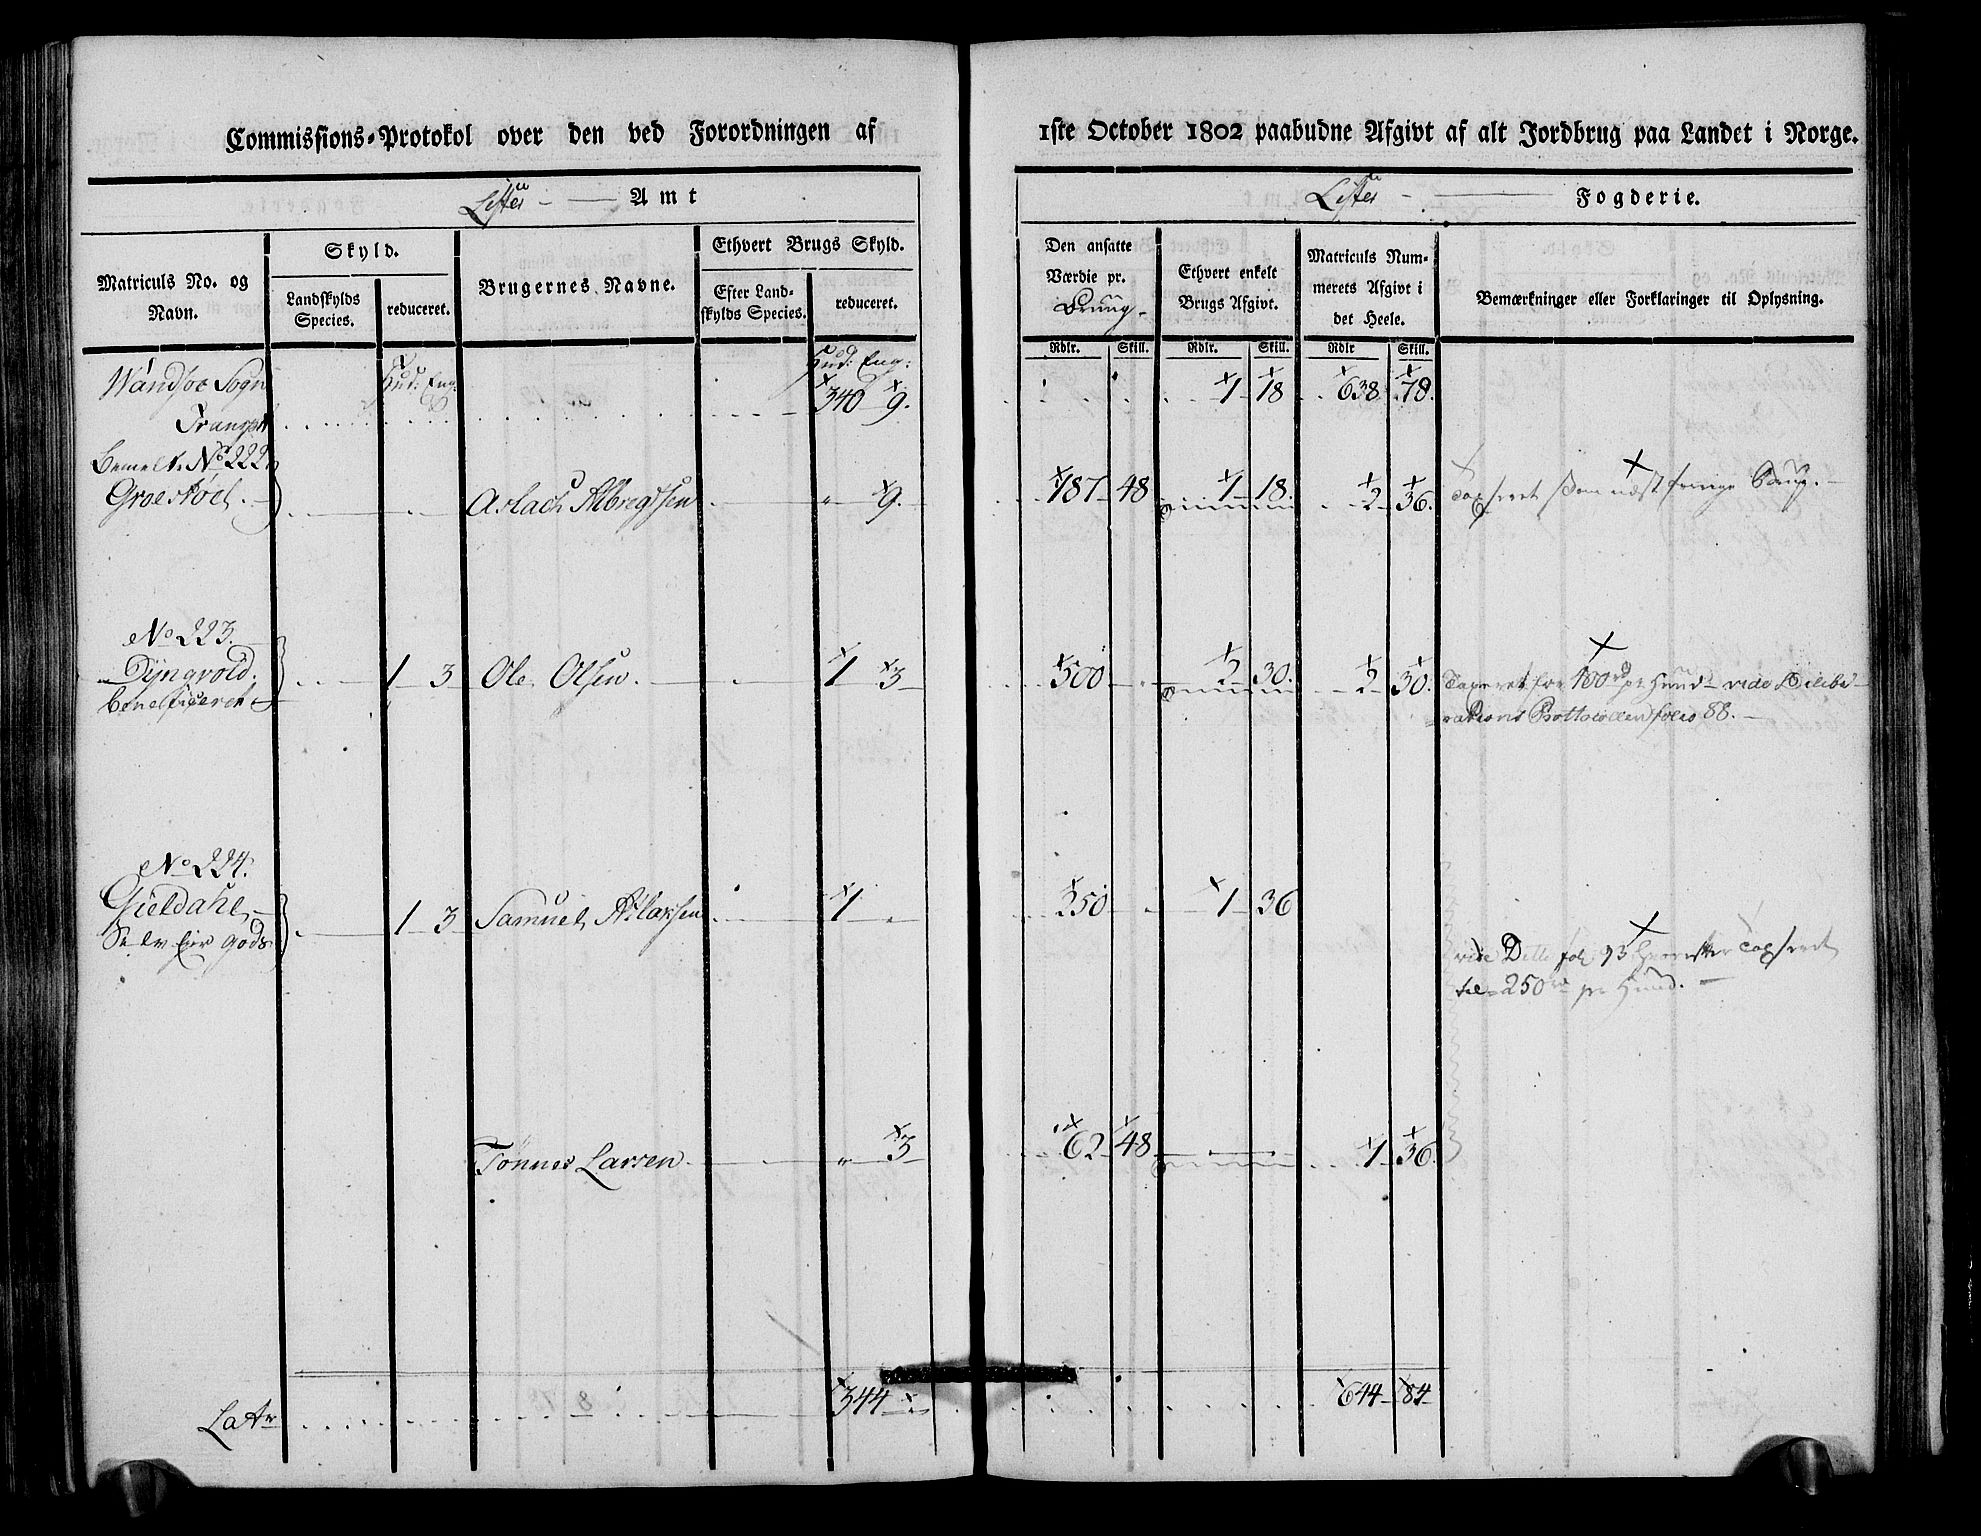 Commissions-Protokol over den ved Forordningen af
1ste October 1802 paabudne Afgivt af alt Jordbrug paa Landet i Norge.
Lister Amt
Lister Fogderie.
Matriculs No. og Navn.
Skyld.
Landskylds Species.
reduceret.
Brugernes Navne.
Ethvert Brugs Skyld.
Efter Landskylds Species.
reduceret.
Den ansatte Værdie pr. Bruug.
Ethvert enkelt Brugs Afgivt.
Matriculs Nummerets Afgivt i det Heele.
Bemærkninger eller Forklaringer til Oplysning.
Rdlr. Skill. Rdlr. Skill. Rdlr Skill.
Hud: Eng: Hud: Eng:
Wandsøe Sogn
Transport 340 9. 1 18 638 78.
Bemelte No 222
Groeskoel. Aslach Albregtsen " 9. 187 48 1 18. 2 36.
No 223.
Dyngvold. 1 3 Ole Olsen. 1 3 500 2 30. 2 30. Taxeret for 400 rd pr Hud vide Delibe-
beneficeret rations Prottocollen folio 88.
No 224.
Gieldahl 1 3 Samuel Atlaksen 1 250 1 36
Selv Eier gods vide Ditto fol 93 hvorefter Taxeret
til 250 rd pr Hud.
Tønnes Larsen. " 3 62 48 1 36.
Latr 344 644 84